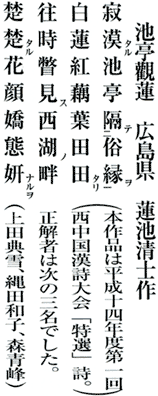 池亭觀蓮　広島県　蓮池清士作
寂漠タル池亭隔テ俗縁ヲ
白蓮紅藕葉田田タリ
往時瞥見ス西湖ノ畔
楚楚タル花顔嬌態妍ナルヲ
（本作品は平成十四年度第一回
西中国漢詩大会「特選」詩。
正解者は次の三名でした。
（上田典雪、縄田和子、森青峰）